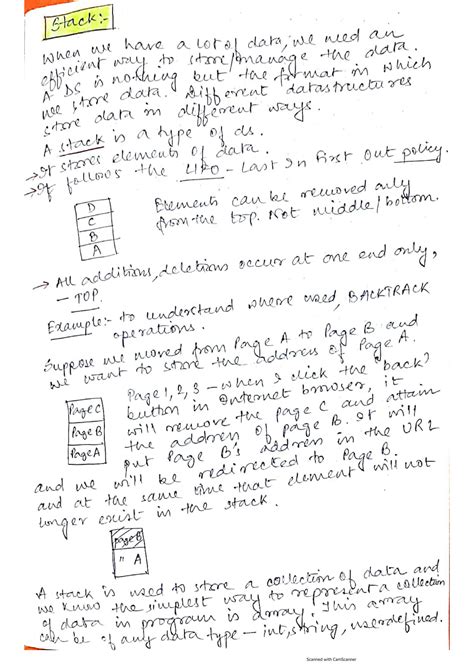 Stack:-
When we have a lot of data, we need an
efficient way to store/manage the data.
A DS is nothing but the format in which
we store data. Different datastructures
store data in different ways.
A stack is a type of ds.
→ It stores elements of data.
→ It follows the LIFO - Last In First Out policy.
D
C
B
A
Elements can be removed only
from the top. Not middle/bottom.
→ All additions, deletions occur at one end only,
- TOP.
Example:- to understand where used, BACKTRACK
operations.
Suppose we moved from Page A to Page B and
we want to store the address of Page A.
Page C
Page B
Page A
Page 1, 2, 3 - when I click the "back"
button in internet browser, it
will remove the page C and attain
the address of page B. It will
put Page B's address in the URL
and we will be redirected to Page B.
and at the same time that element will not
longer exist in the stack.
Page B
" A
A stack is used to store a collection of data and
we know the simplest way to represent a collection
of data in program is array. This array
can be of any data type - int, string, userdefined.
Scanned with CamScanner